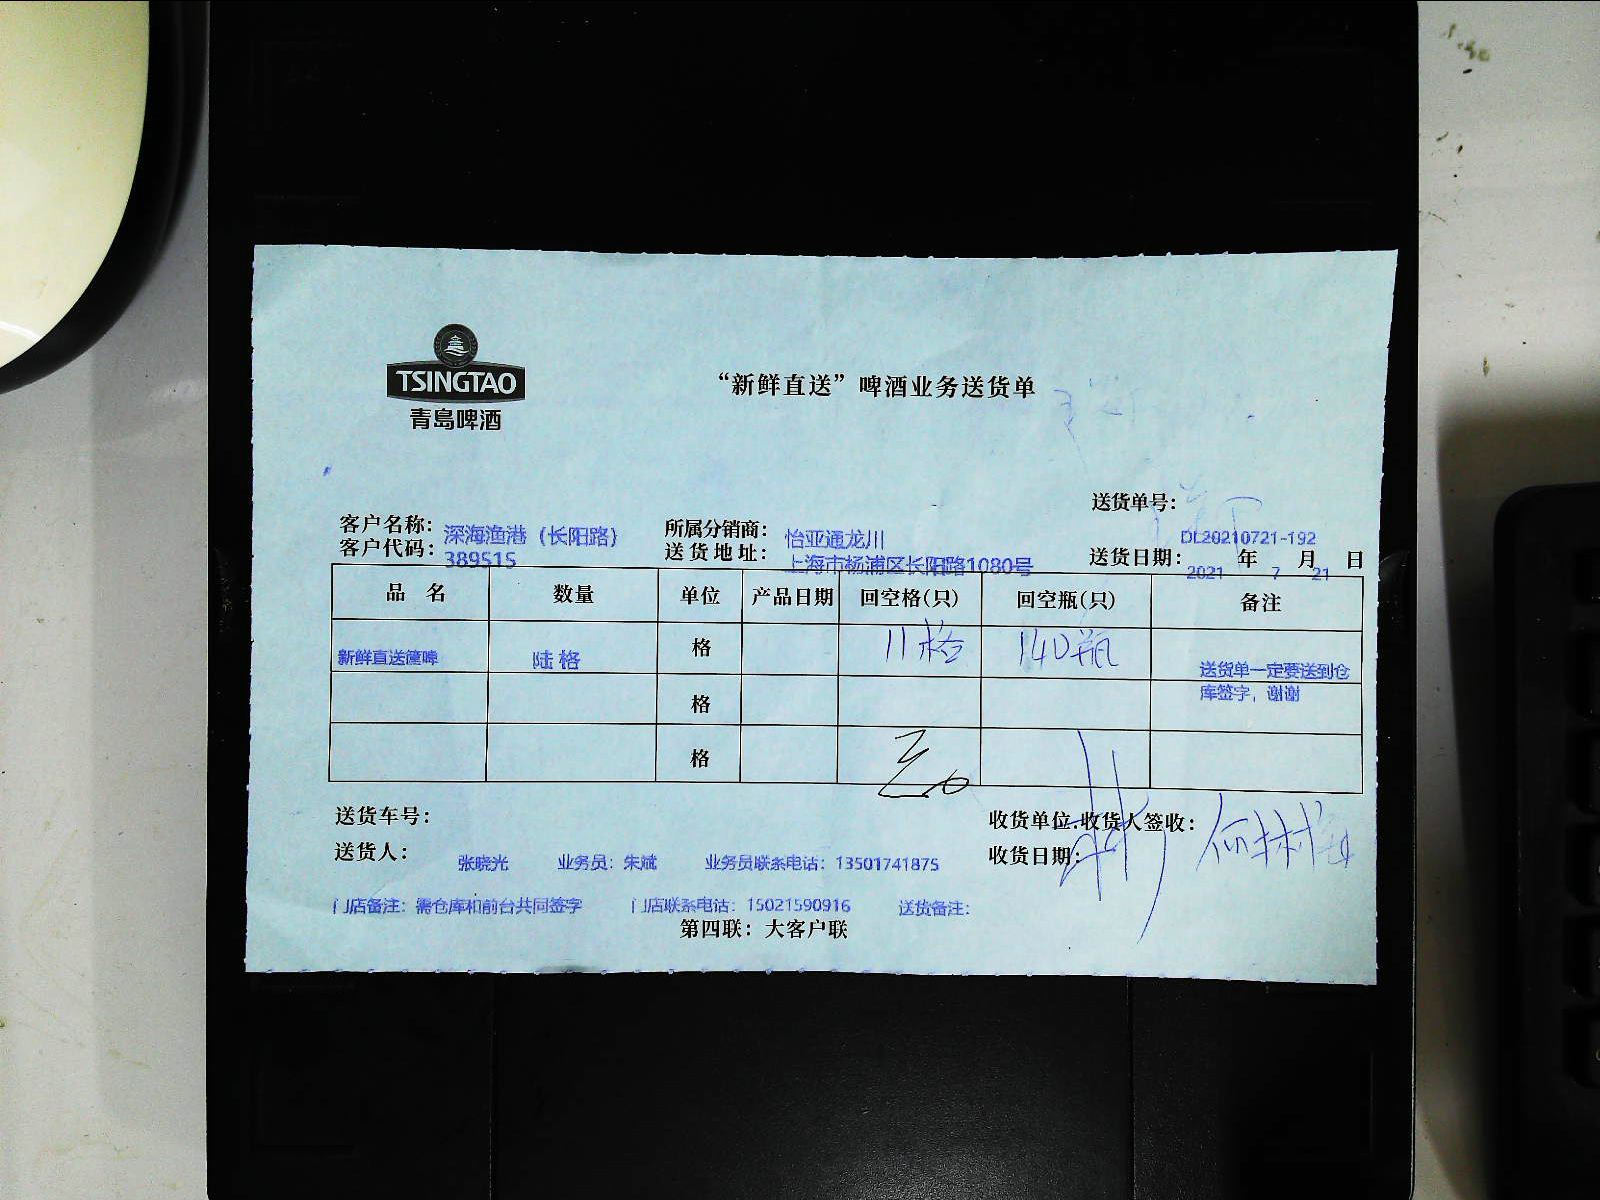 TSINGTAO
青島啤酒
“新鲜直送”啤酒业务送货单
送货单号：
DL20210721-192
客户名称：深海渔港（长阳路）
所属分销商：怡亚通龙川
客户代码：389515
送货地址：上海市杨浦区长阳路1080号
送货日期：2021年7月21日
品 名 数量 单位 产品日期 回空格(只) 回空瓶(只) 备注
新鲜直送箧啤 陆格 格 11格 140瓶 送货单一定要送到仓
库签字，谢谢
格
格
送货车号：
收货单位.收货人签收：
送货人：张晓光 业务员：朱斌 业务员联系电话：13501741875
收货日期：
门店备注：需仓库和前台共同签字 门店联系电话：15021590916 送货备注：
第四联：大客户联